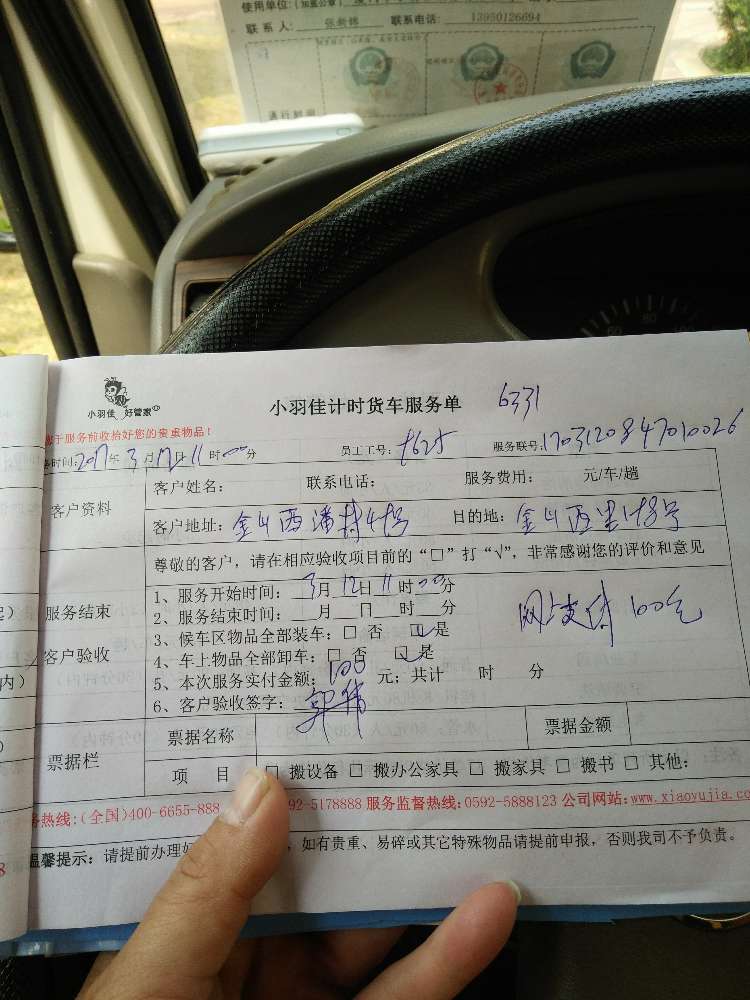 使用单位:(加盖公章)
联系人 联系电话: 13950126694
通行时间
60 80 100
小羽佳 好管家
小羽佳计时货车服务单 6331
于服务前收拾好您的贵重物品!
务时间:2017年3月12日11时00分 员工工号: t625 服务联号:1703120847010026
客户资料
客户姓名: 联系电话: 服务费用: 元/车/趟
客户地址: 目的地:
尊敬的客户，请在相应验收项目前的“□”打“√”，非常感谢您的评价和意见
服务结束
客户验收
1、服务开始时间: 3月12日11时00分
2、服务结束时间: 月 日 时 分
3、候车区物品全部装车: □ 否 ☑ 是
4、车上物品全部卸车: □ 否 ☑ 是
5、本次服务实付金额: 100 元; 共计 时 分
6、客户验收签字:
网上支付 100元
票据栏
票据名称 票据金额
项目 □ 搬设备 □ 搬办公家具 □ 搬家具 □ 搬书 □ 其他:
务热线:(全国)400-6655-888 592-5178888 服务监督热线:0592-5888123 公司网站:www.xiaoyujia.co
温馨提示: 请提前办理好 ，如有贵重、易碎或其它特殊物品请提前申报，否则我司不予负责。